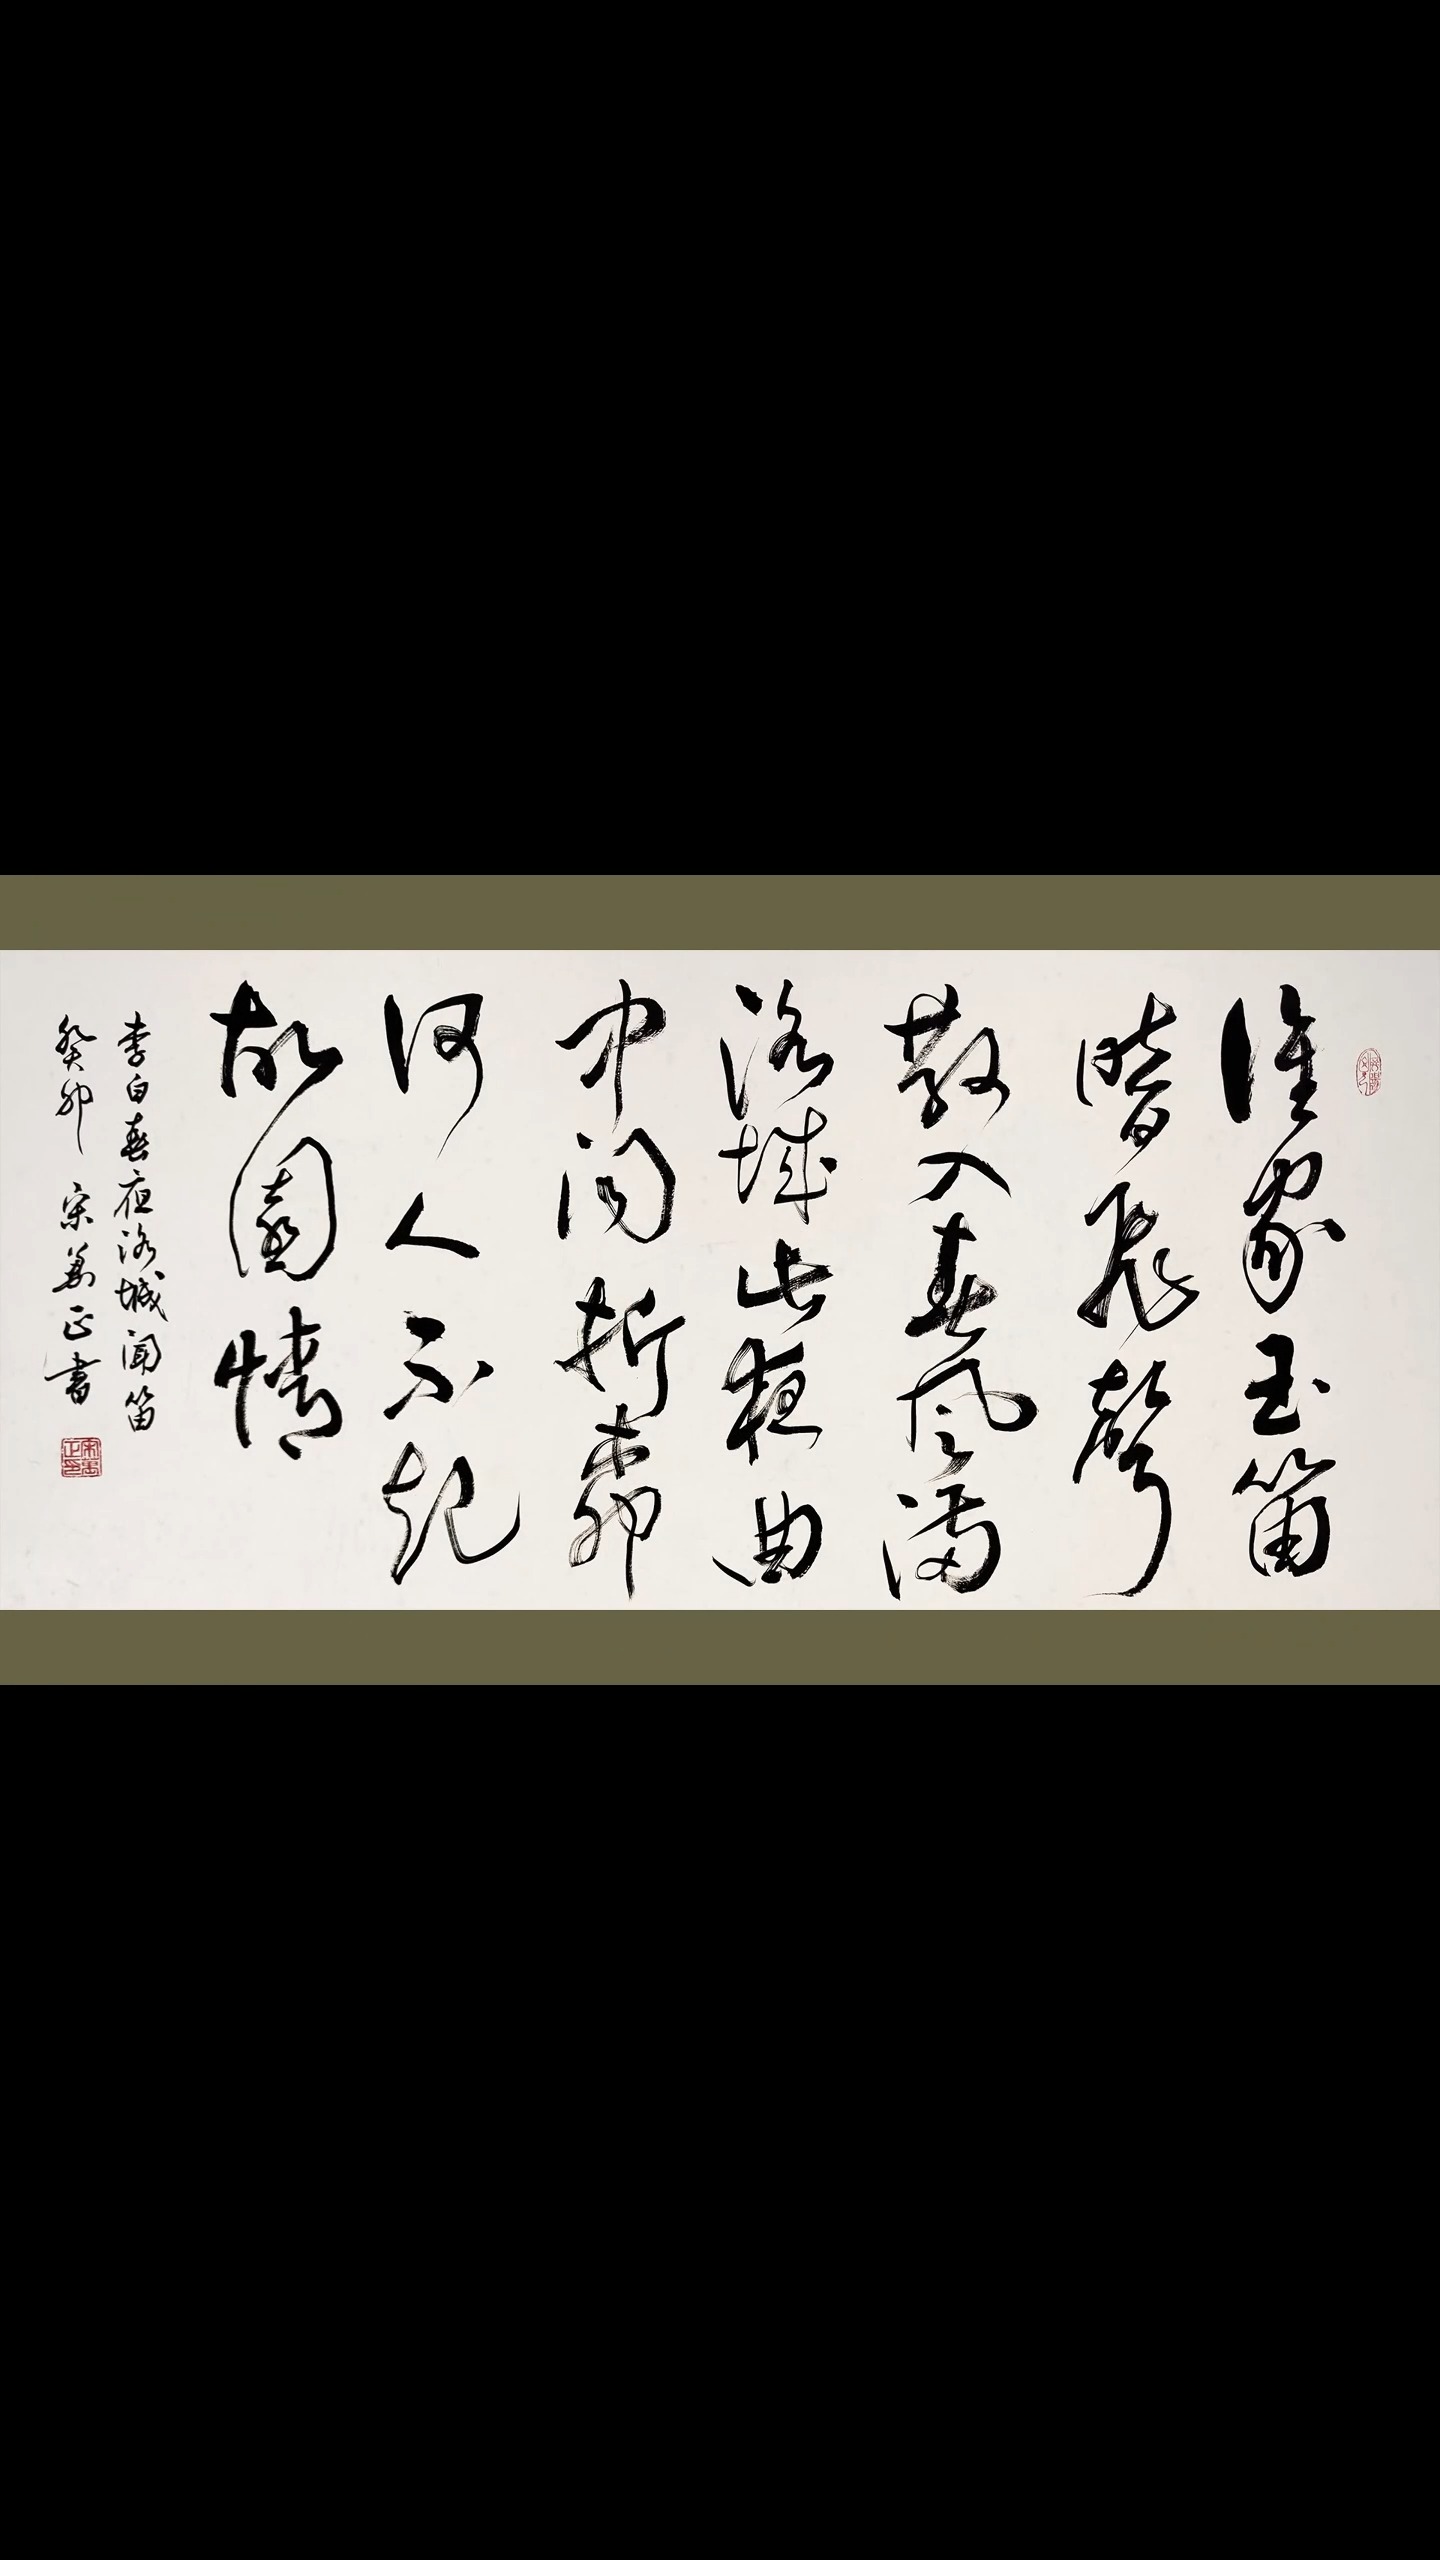 谁家玉笛
暗飛聲
散入春风满
洛城此夜曲
中闻折柳
何人不起
故園情
李白春夜洛城闻笛
癸卯 宋萬正書